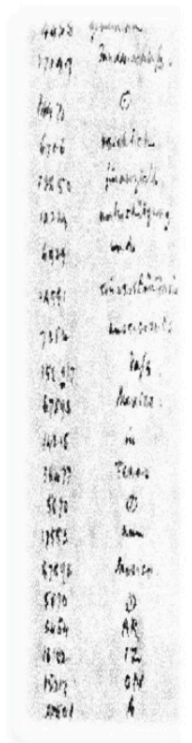 4458 gemeinsam
17149 Friedenschluß.
14471 ⊙
6706 reichlich
13850 finanziell
12224 unterstützung
6929 und
14991 einverständnis
7382 unsererseits
158(5)7 daß
67893 Mexico.
14218 in
36477 Texas
5670 ⊙
17553 neu
67893 Mexico.
5870 ⊙
5454 AR
16102 IZ
15217 ON
22801 A